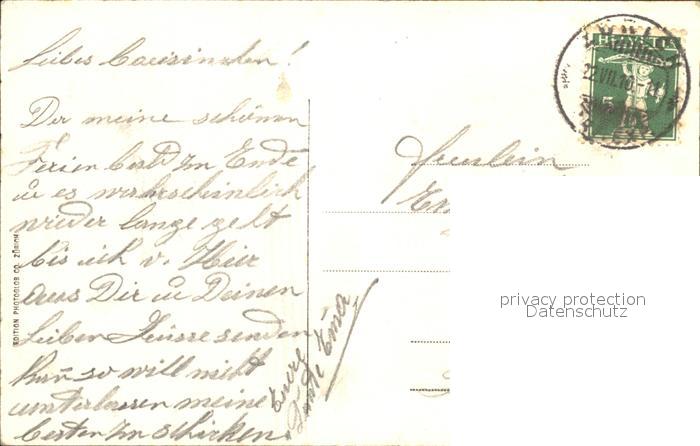 Liebes Cousinchen!
Da meine schönen
Ferien bald zu Ende
u es wahrscheinlich
wieder lange geht
bis ich v. Hier
aus Dir u Deinen
Lieben Grüsse senden
kan so will nicht
unterlassen meine
besten zu schicken.
Eure
Tante Emma
Fräulein
EDITION PHOTOGLOB CO. ZÜRICH
HELVETIA
5
22.VII.10.
privacy protection
Datenschutz